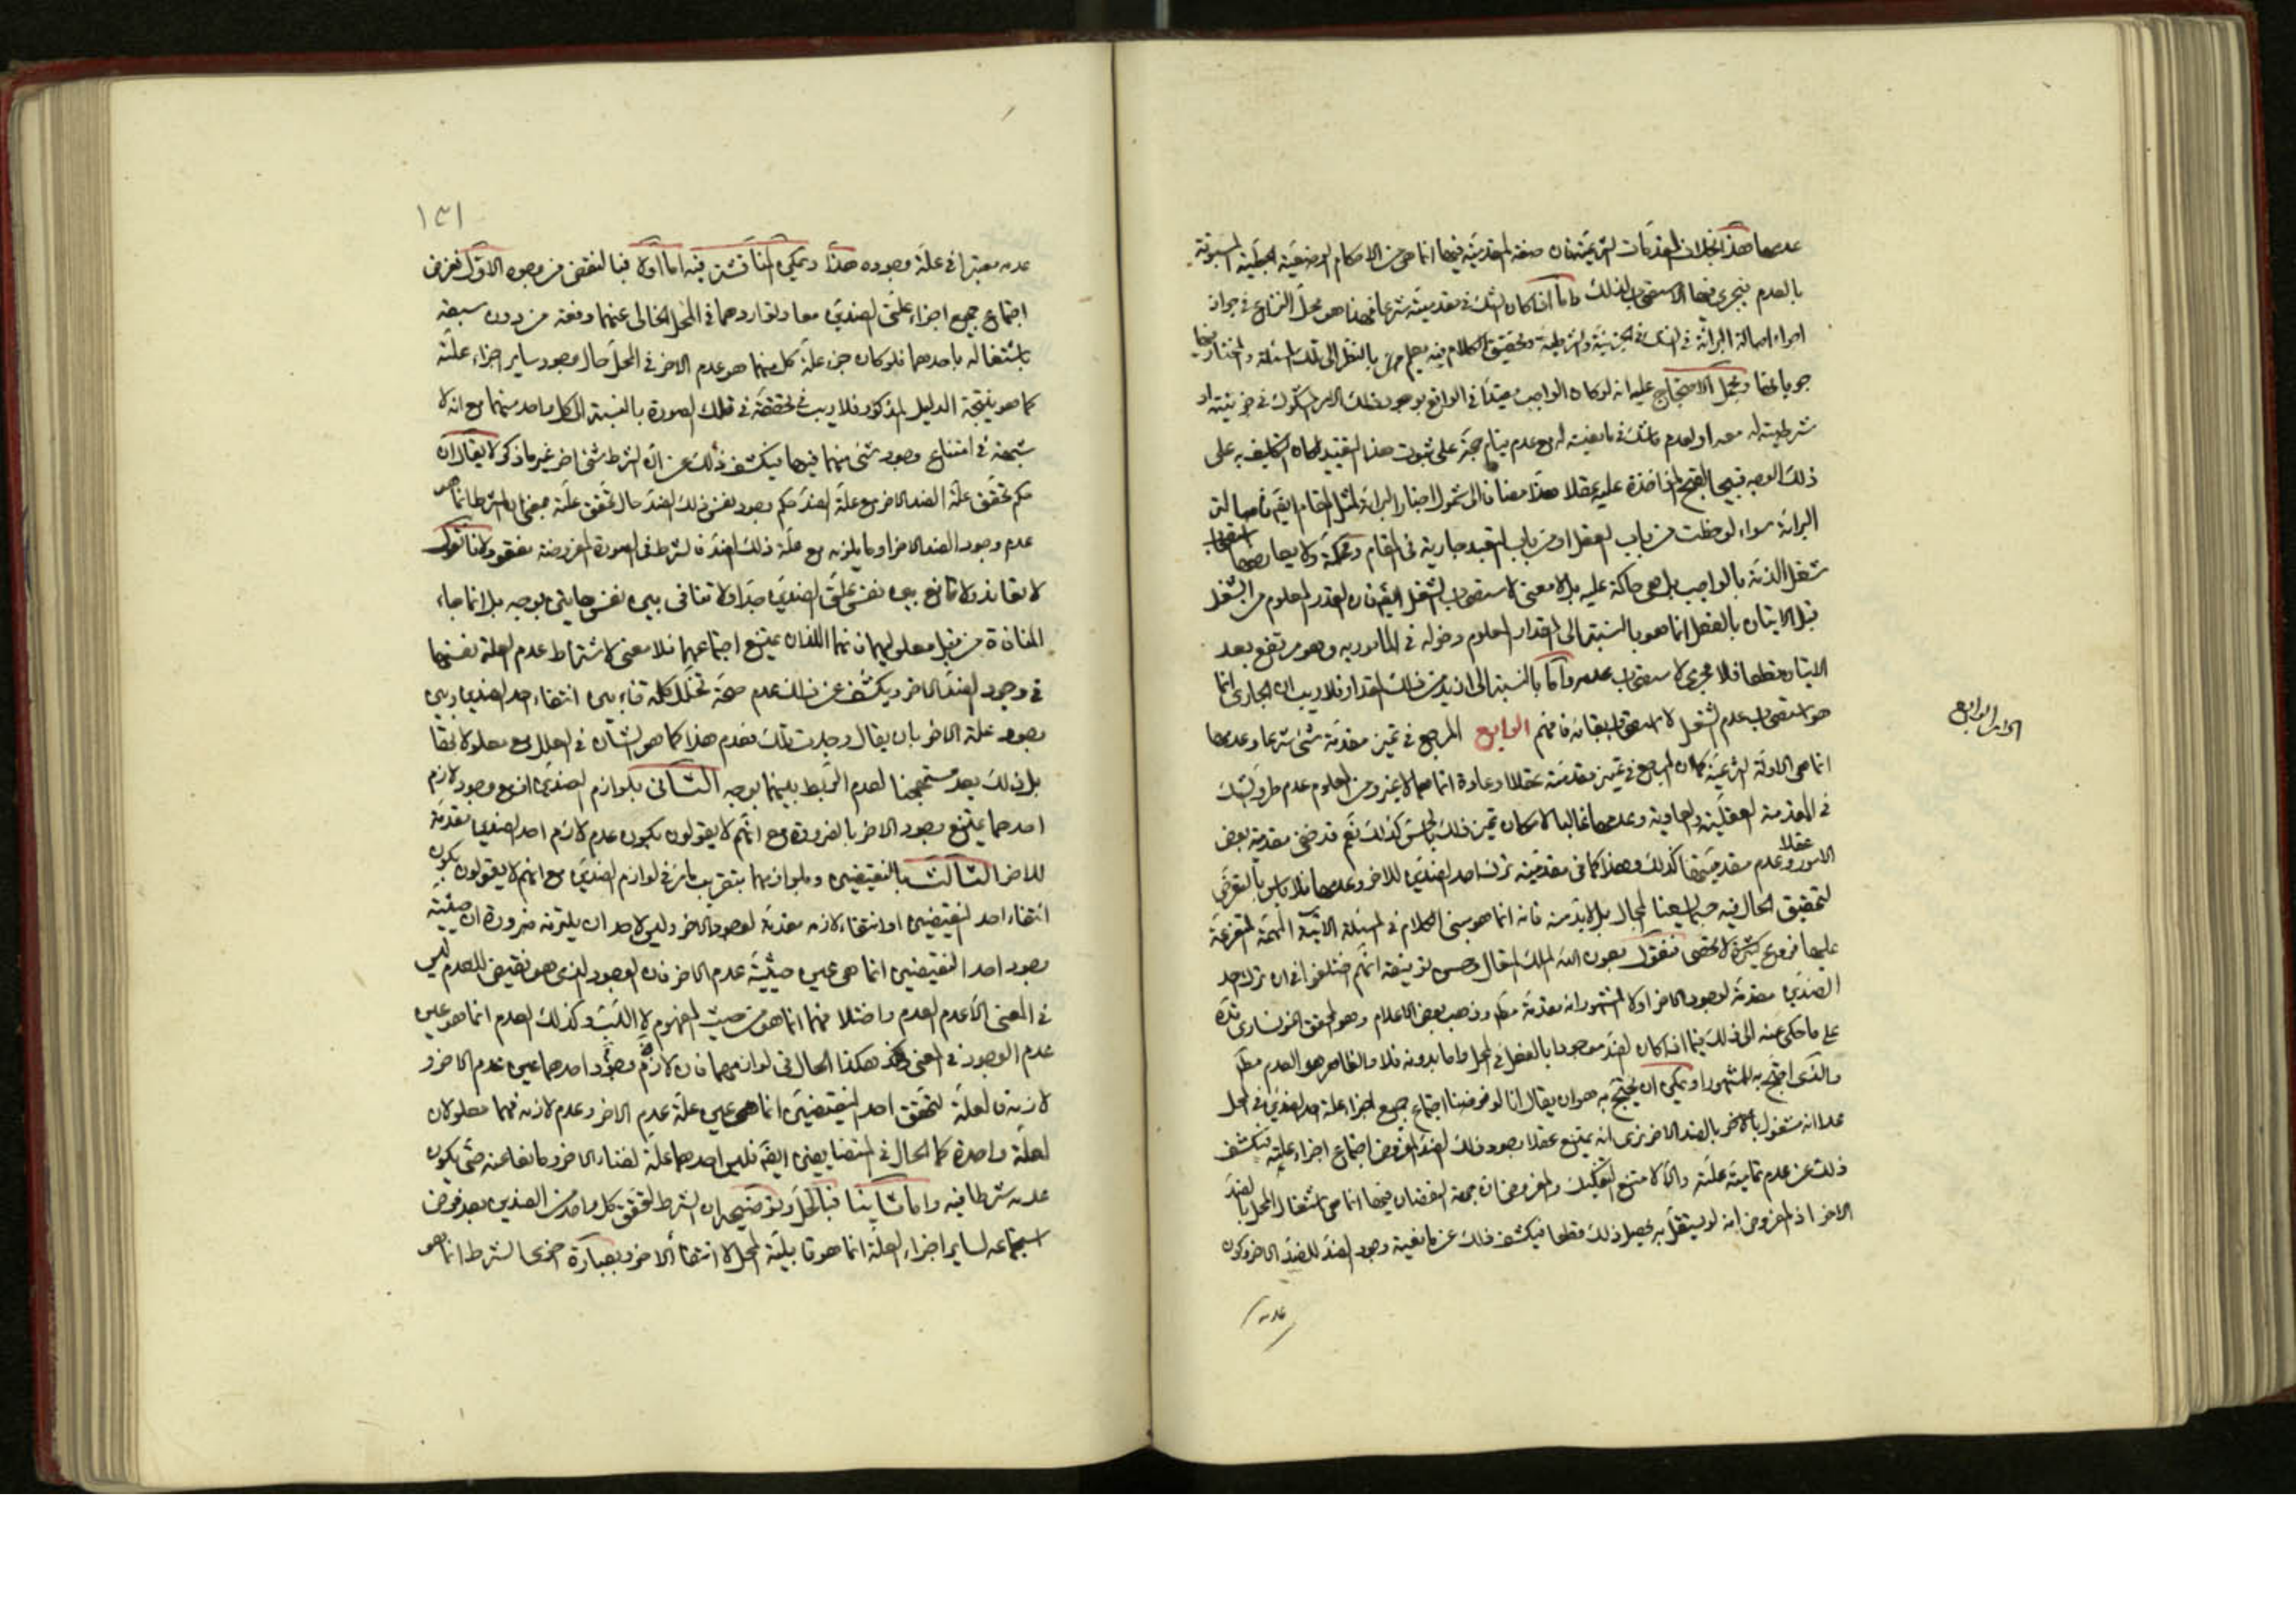 عدمها هذا بخلاف المقدمات الشرعية فان صفة المقدمية فيها انما هي من الاحكام الوضعية الجعلية المسبوقة
بالعدم فيجري فيها الاستصحاب لذلك واما اذا كان الشك في مقدمية شرعا فهذا هو محل النزاع في جواز
اجراء اصالة البرائة في الشك في الجزئية والشرطية وتحقيق الكلام فيه يعلم بالنظر الى تلك المسئلة والمختار فيها
جريانها ومجمل الاحتجاج عليه انه لو كان الواجب مقيدا في الواقع بوجود ذلك الامر المشكوك في جزئيته او
شرطيته له معه او لعدم ما شك في مانعيته له مع عدم قيام حجة على ثبوت هذا التقييد لكان التكليف به على
ذلك الوجه قبيحا لقبح المؤاخذة عليه عقلا هذا مضافا الى شمول اخبار البرائة لمثل المقام ايضا فاصالة
البرائة سواء لوحظت من باب العقل او من باب التعبد جارية في المقام ومحكمة ولا يعارضها استصحاب
شغل الذمة بالواجب بل هي حاكمة عليه بل لا معنى لاستصحاب الشغل ايضا فان القدر المعلوم من الشغل
قبل الاتيان بالفعل انما هو بالنسبة الى المقدار المعلوم دخوله في المأمور به وهو مرتفع بعد
الاتيان قطعا فلا مجرى لاستصحاب عدمه واما بالنسبة الى ازيد من ذلك المقدار فلا ريب ان الجاري انما
هو استصحاب عدم الشغل لا استصحاب بقائه فافهم الرابع المرجع في تميز مقدمة شيء شرعا وعدمها
الامر الرابع
انما هي الادلة الشرعية كما ان المرجع في تميز مقدمته عقلا او عادة انما هما لا غير ومن المعلوم عدم طرو الشك
في المقدمة العقلية والعادية وعدمها غالبا لامكان تميز ذلك بالحس كذلك نعم قد خفي مقدمية بعض
الامور عقلا وعدم مقدميتها كذلك وهذا كما في مقدمية ترك احد الضدين للاخر وعدمها فلا باس بالتعرض
لتحقيق الحال فيه حسبما يسعنا المجال بل لا بد منه فانه انما هو مبنى الكلام في المسئلة الاتية المهمة المتفرعة
عليها فروع كثيرة لا تحصى فنقول بعون الله الملك المتعال وحسن توفيقه انهم اختلفوا في ان ترك احد
الضدين مقدمة لوجود الاخر او لا المشهور انه مقدمة مط وذهب بعض الاعلام وهو المحقق الخونساري قده
على ما حكى عنه الى ذلك فيما اذا كان الضد موجودا بالفعل في المحل واما بدونه فلا والظاهر هو العدم مط
والذي احتج به للمشهور او يمكن ان يحتج به هو ان يقال انا لو فرضنا اجتماع جميع اجزاء علة احد الضدين في محل
عدا انه مشغول بالاخر بالضد الاخر نرى انه يمتنع عقلا وجود ذلك الضد المفروض اجتماع اجزاء علته فيكشف
ذلك عن عدم تمامية علته والا لامتنع التفكيك والمفروض ان جهة النقصان فيها انما هي اشتغال المحل بالضد
الاخر اذ المفروض انه لو يستقل به يحصل ذلك قطعا فيكشف ذلك عن مانعية وجود الضد للضد الاخر وكون
عدمه
١٣١
عدمه معتبرا في علة وجوده هذا ويمكن المناقشة فيه اما اولا فبالنقض من وجوه الاول نفرض
اجتماع جميع اجزاء علتي الضدين معا وتواردهما في المحل الخالي عنهما دفعة من دون سبقه
باشتغاله باحدهما فلو كان جزء علة كل منهما هو عدم الاخر في المحل حال وجود ساير اجزاء علته
كما هو نتيجة الدليل المذكور فلا ريب في تحققه في تلك الصورة بالنسبة الى كل واحد منهما مع انه لا
شبهة في امتناع وجود شيء منهما فيها فيكشف ذلك عن ان الشرط شيء اخر غير ما ذكر لا يقال ان
حكم تحقق علة الضد الاخر مع علة الضد حكم وجود نفس ذلك الضد حال تحقق علته بمعنى ان الشرط انما هو
عدم وجود الضد الاخر او ما يلزمه مع علة ذلك الضد فالشرط في الصورة المفروضة مفقود لانا نقول
لا تعاند ولا تمانع بين نفس علتي الضدين جدا ولا تنافي بين نفس هاتين بوجه بل انما جاء
المنافاة من قبل معلوليهما فانهما اللذان يمتنع اجتماعهما فلا معنى لاشتراط عدم العلة نفسها
في وجود الضد الاخر ويكشف عن ذلك عدم صحة تخلل كلمة فاء بين انتفاء احد الضدين وبين
وجود علة الاخر بان يقال وجدت تلك فعدم هذا كما هو الشان في العلل مع معلولاتها
بل ذلك يعد مستهجنا لعدم الربط بينهما بوجه الثاني بلوازم الضدين اذ مع وجود لازم
احدهما يمتنع وجود الاخر بالضرورة مع انهم لا يقولون بكون عدم لازم احد الضدين مقدمة
للاخر الثالث بالنقيضين وبلوازمهما بتقريب ما مر في لوازم الضدين مع انهم لا يقولون بكون
انتفاء احد النقيضين او انتفاء لازمه مقدمة لوجود الاخر وليس لاحد ان يلتزمه ضرورة ان حيثية
وجود احد النقيضين انما هي عين حيثية عدم الاخر فان الوجود الذي هو نقيض للعدم ليس
في المعنى الا عدم العدم واختلافهما انما هو من حيث المفهوم لا اللب وكذلك العدم انما هو عين
عدم الوجود في المعنى هكذا الحال في لوازمهما فان لازم وجود احدهما عين عدم الاخر و
لازمه فالعلة لتحقق احد النقيضين انما هي عين علة عدم الاخر وعدم لازمه فهما معلولان
لعلة واحدة كما الحال في المتضايفين ايضا فليس احدهما علة لفناء الاخر ومانعا عنه حتى يكون
عدمه شرطا فيه واما ثانيا فبالحل وتوضيحه ان الشرط لتحقق كل واحد من الضدين بعد فرض
استجماعه لساير اجزاء العلة انما هو قابلية المحل لا انتفاء الاخر وبعبارة اخرى الشرط انما هو